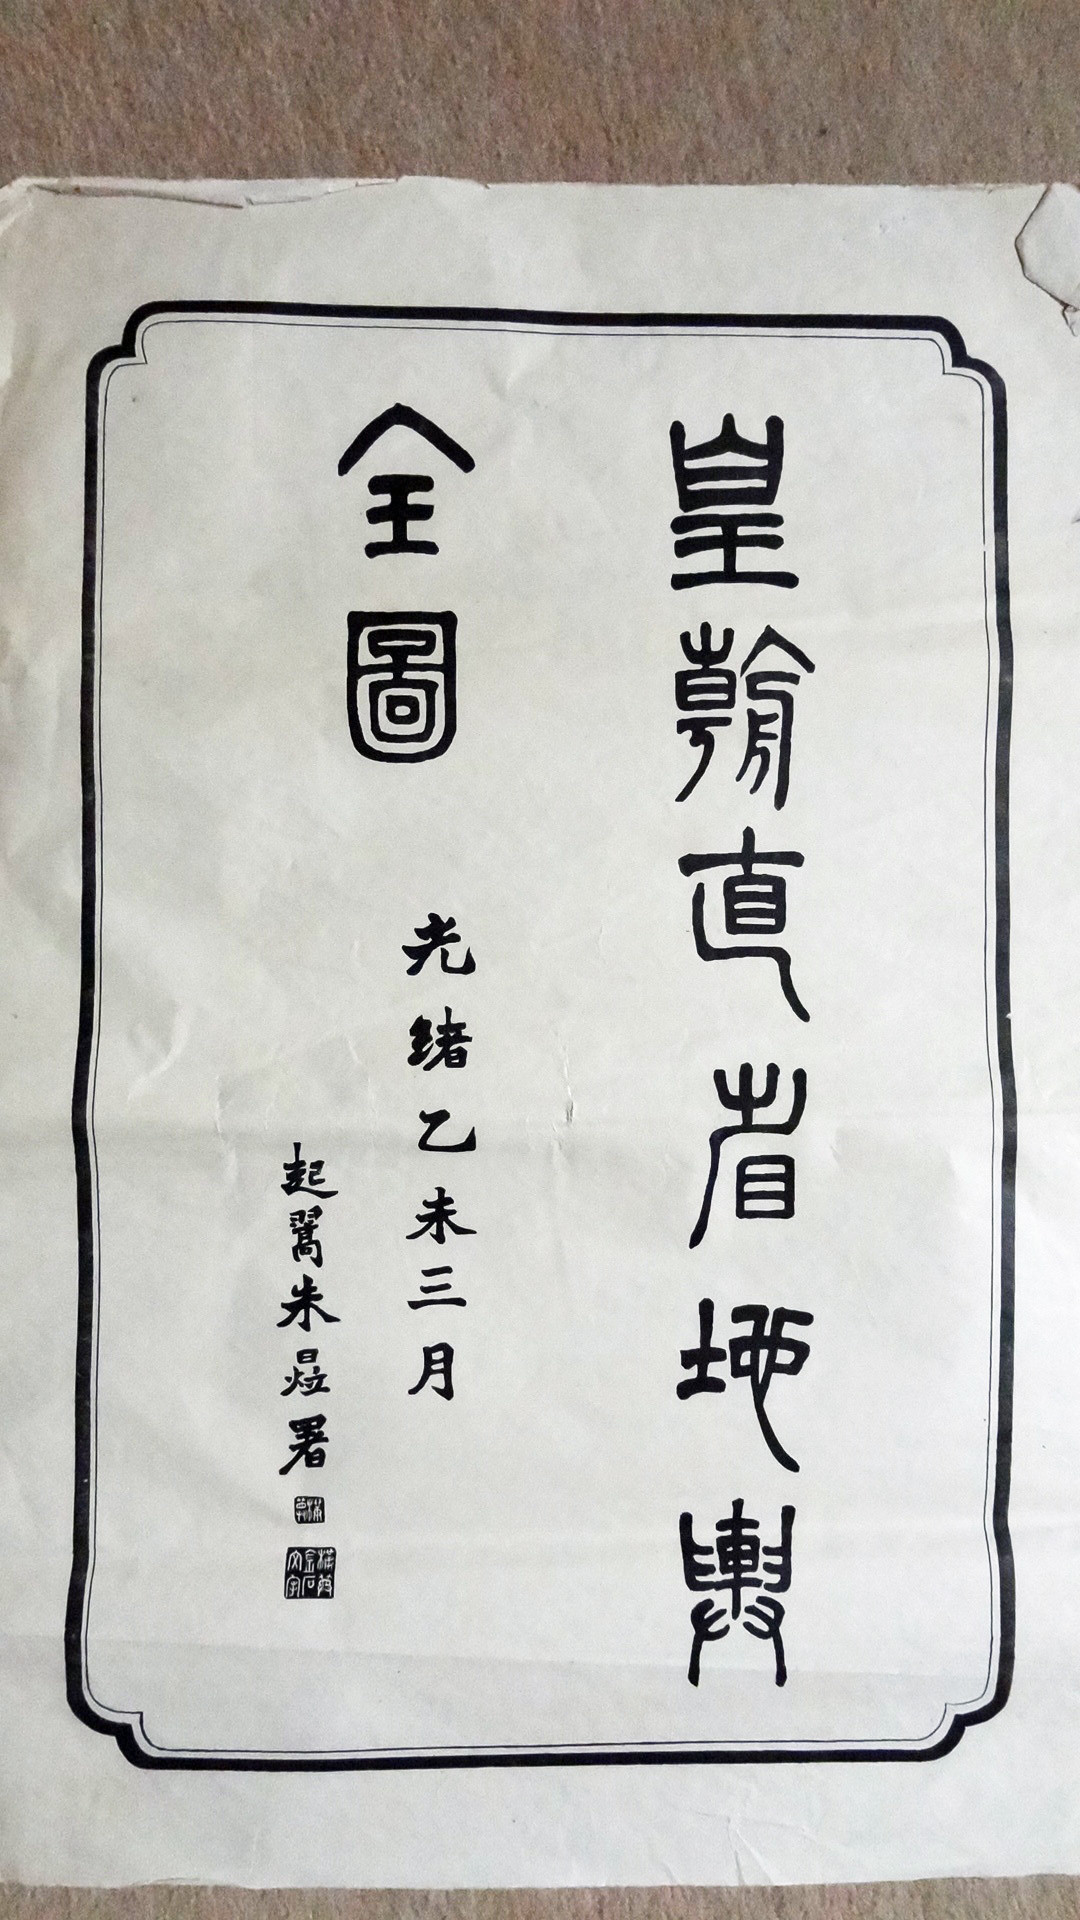 皇朝直省地輿
全圖
光緒乙未三月
起鶱朱昆署